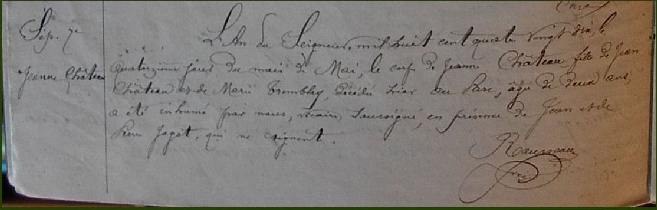 Sép. 7e
Jeanne Château
L'An du Seigneur, mil huit cent quatre vingt dix, le
quatorzième jour du mois de Mai, le corps de Jeanne Château fille de Jean
Château et de Marie Tremblay, décédé hier au Parc, âgé de deux ans
a été inhumé par nous, vicaire soussigné, en présence de Jean et de
Pierre Jagot, qui ne signent.